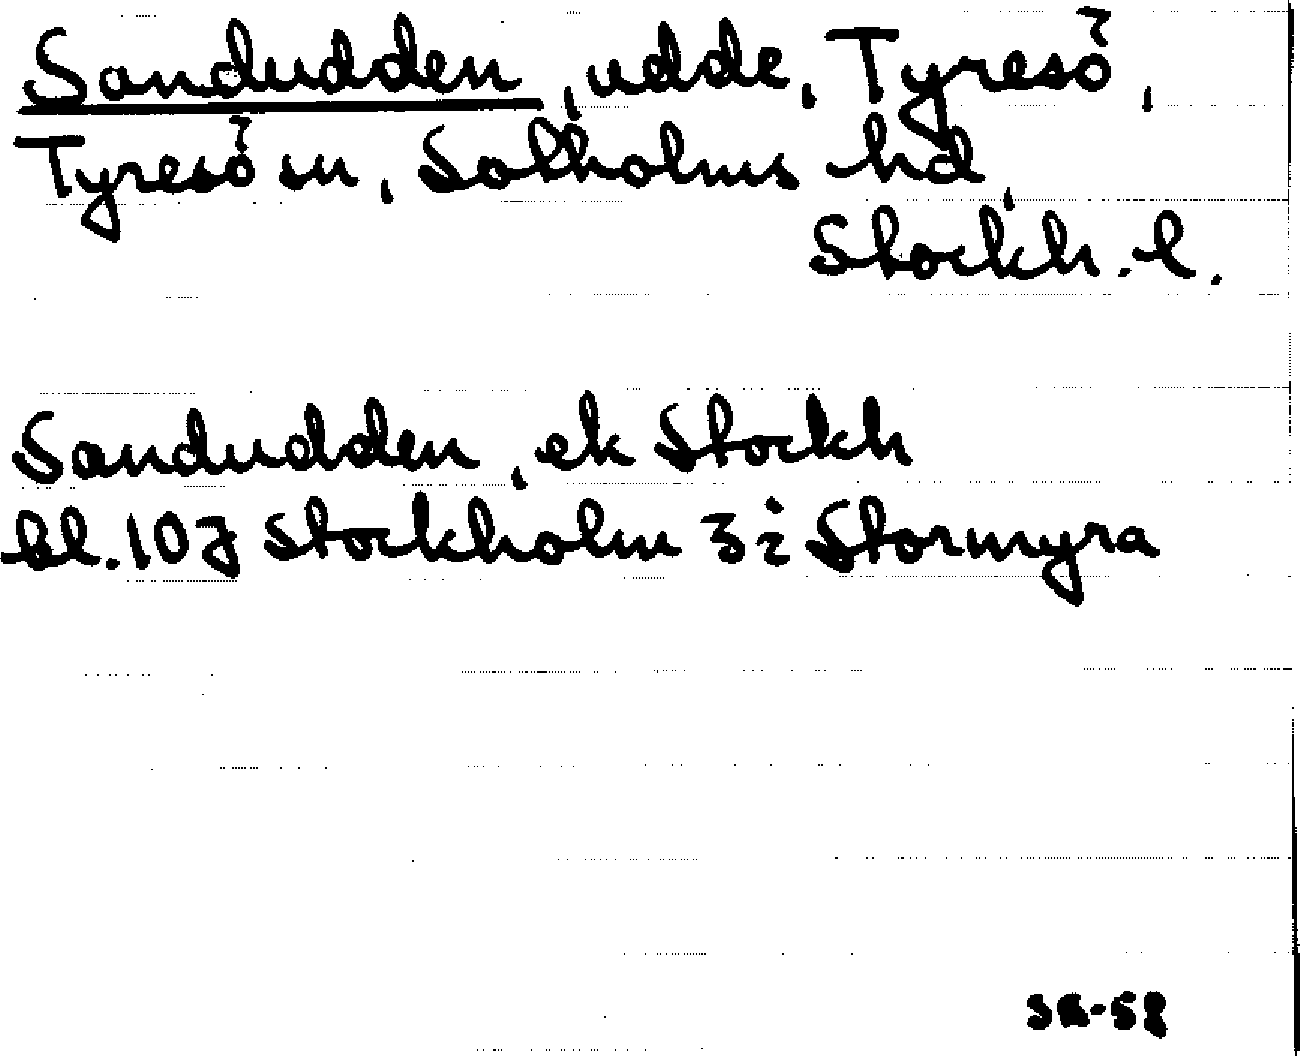 Sandudden, udde, Tyresö,
Tyresö sn, Sotholms hd,
Stockh. l.
Sandudden, ek Stockh
bl. 107 Stockholm 3i Stormyra